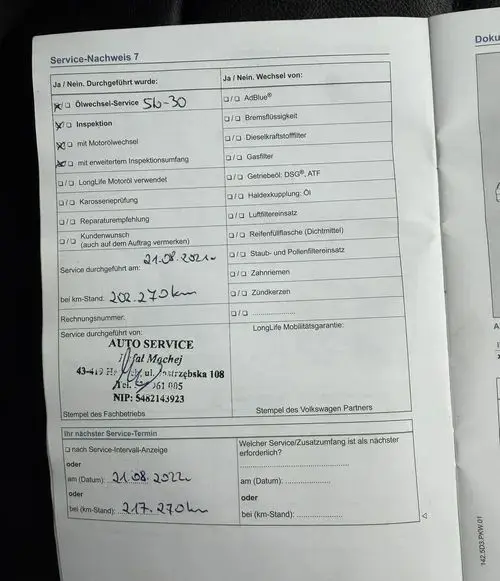 Service-Nachweis 7
Doku
Ja / Nein. Durchgeführt wurde:
Ölwechsel-Service 5W-30
Inspektion
mit Motorölwechsel
mit erweitertem Inspektionsumfang
LongLife Motoröl verwendet
Karosserieprüfung
Reparaturempfehlung
Kundenwunsch
(auch auf dem Auftrag vermerken)
Service durchgeführt am: 21.08.2021
bei km-Stand: 202.270km
Rechnungsnummer:
Ja / Nein. Wechsel von:
AdBlue®
Bremsflüssigkeit
Dieselkraftstofffilter
Gasfilter
Getriebeöl: DSG®, ATF
Haldexkupplung: Öl
Luftfiltereinsatz
Reifenfüllflasche (Dichtmittel)
Staub- und Pollenfiltereinsatz
Zahnriemen
Zündkerzen
Service durchgeführt von:
AUTO SERVICE
Machej
43-419 ul. 108
Tel. 061 005
NIP: 5482143923
Stempel des Fachbetriebs
LongLife Mobilitätsgarantie:
Stempel des Volkswagen Partners
Ihr nächster Service-Termin
nach Service-Intervall-Anzeige
oder
am (Datum): 21.08.2022
oder
bei (km-Stand): 217.270km
Welcher Service/Zusatzumfang ist als nächster
erforderlich?
am (Datum):
oder
bei (km-Stand):
142.5D3.PKW.01